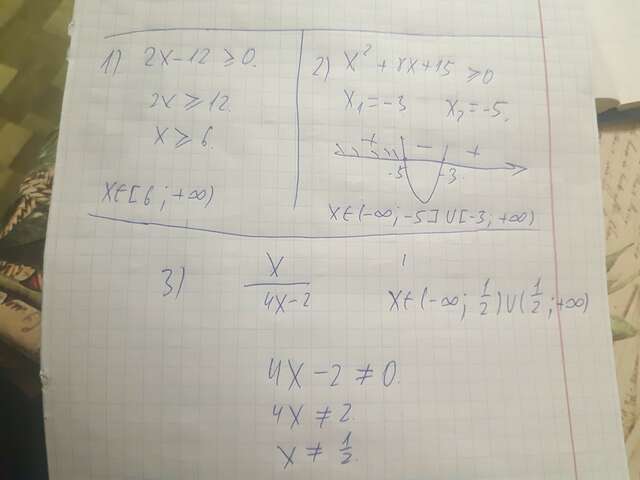 1) 2x-12 ≥ 0.
2x ≥ 12.
x ≥ 6.
x∈[6; +∞)
2) x² + 8x+15 ≥ 0
x₁ = -3 x₂ = -5.
+ - +
-5 -3
x∈(-∞; -5]∪[-3; +∞)
3) x/(4x-2)
x∈(-∞; 1/2)∪(1/2; +∞)
4x - 2 ≠ 0.
4x ≠ 2.
x ≠ 1/2.